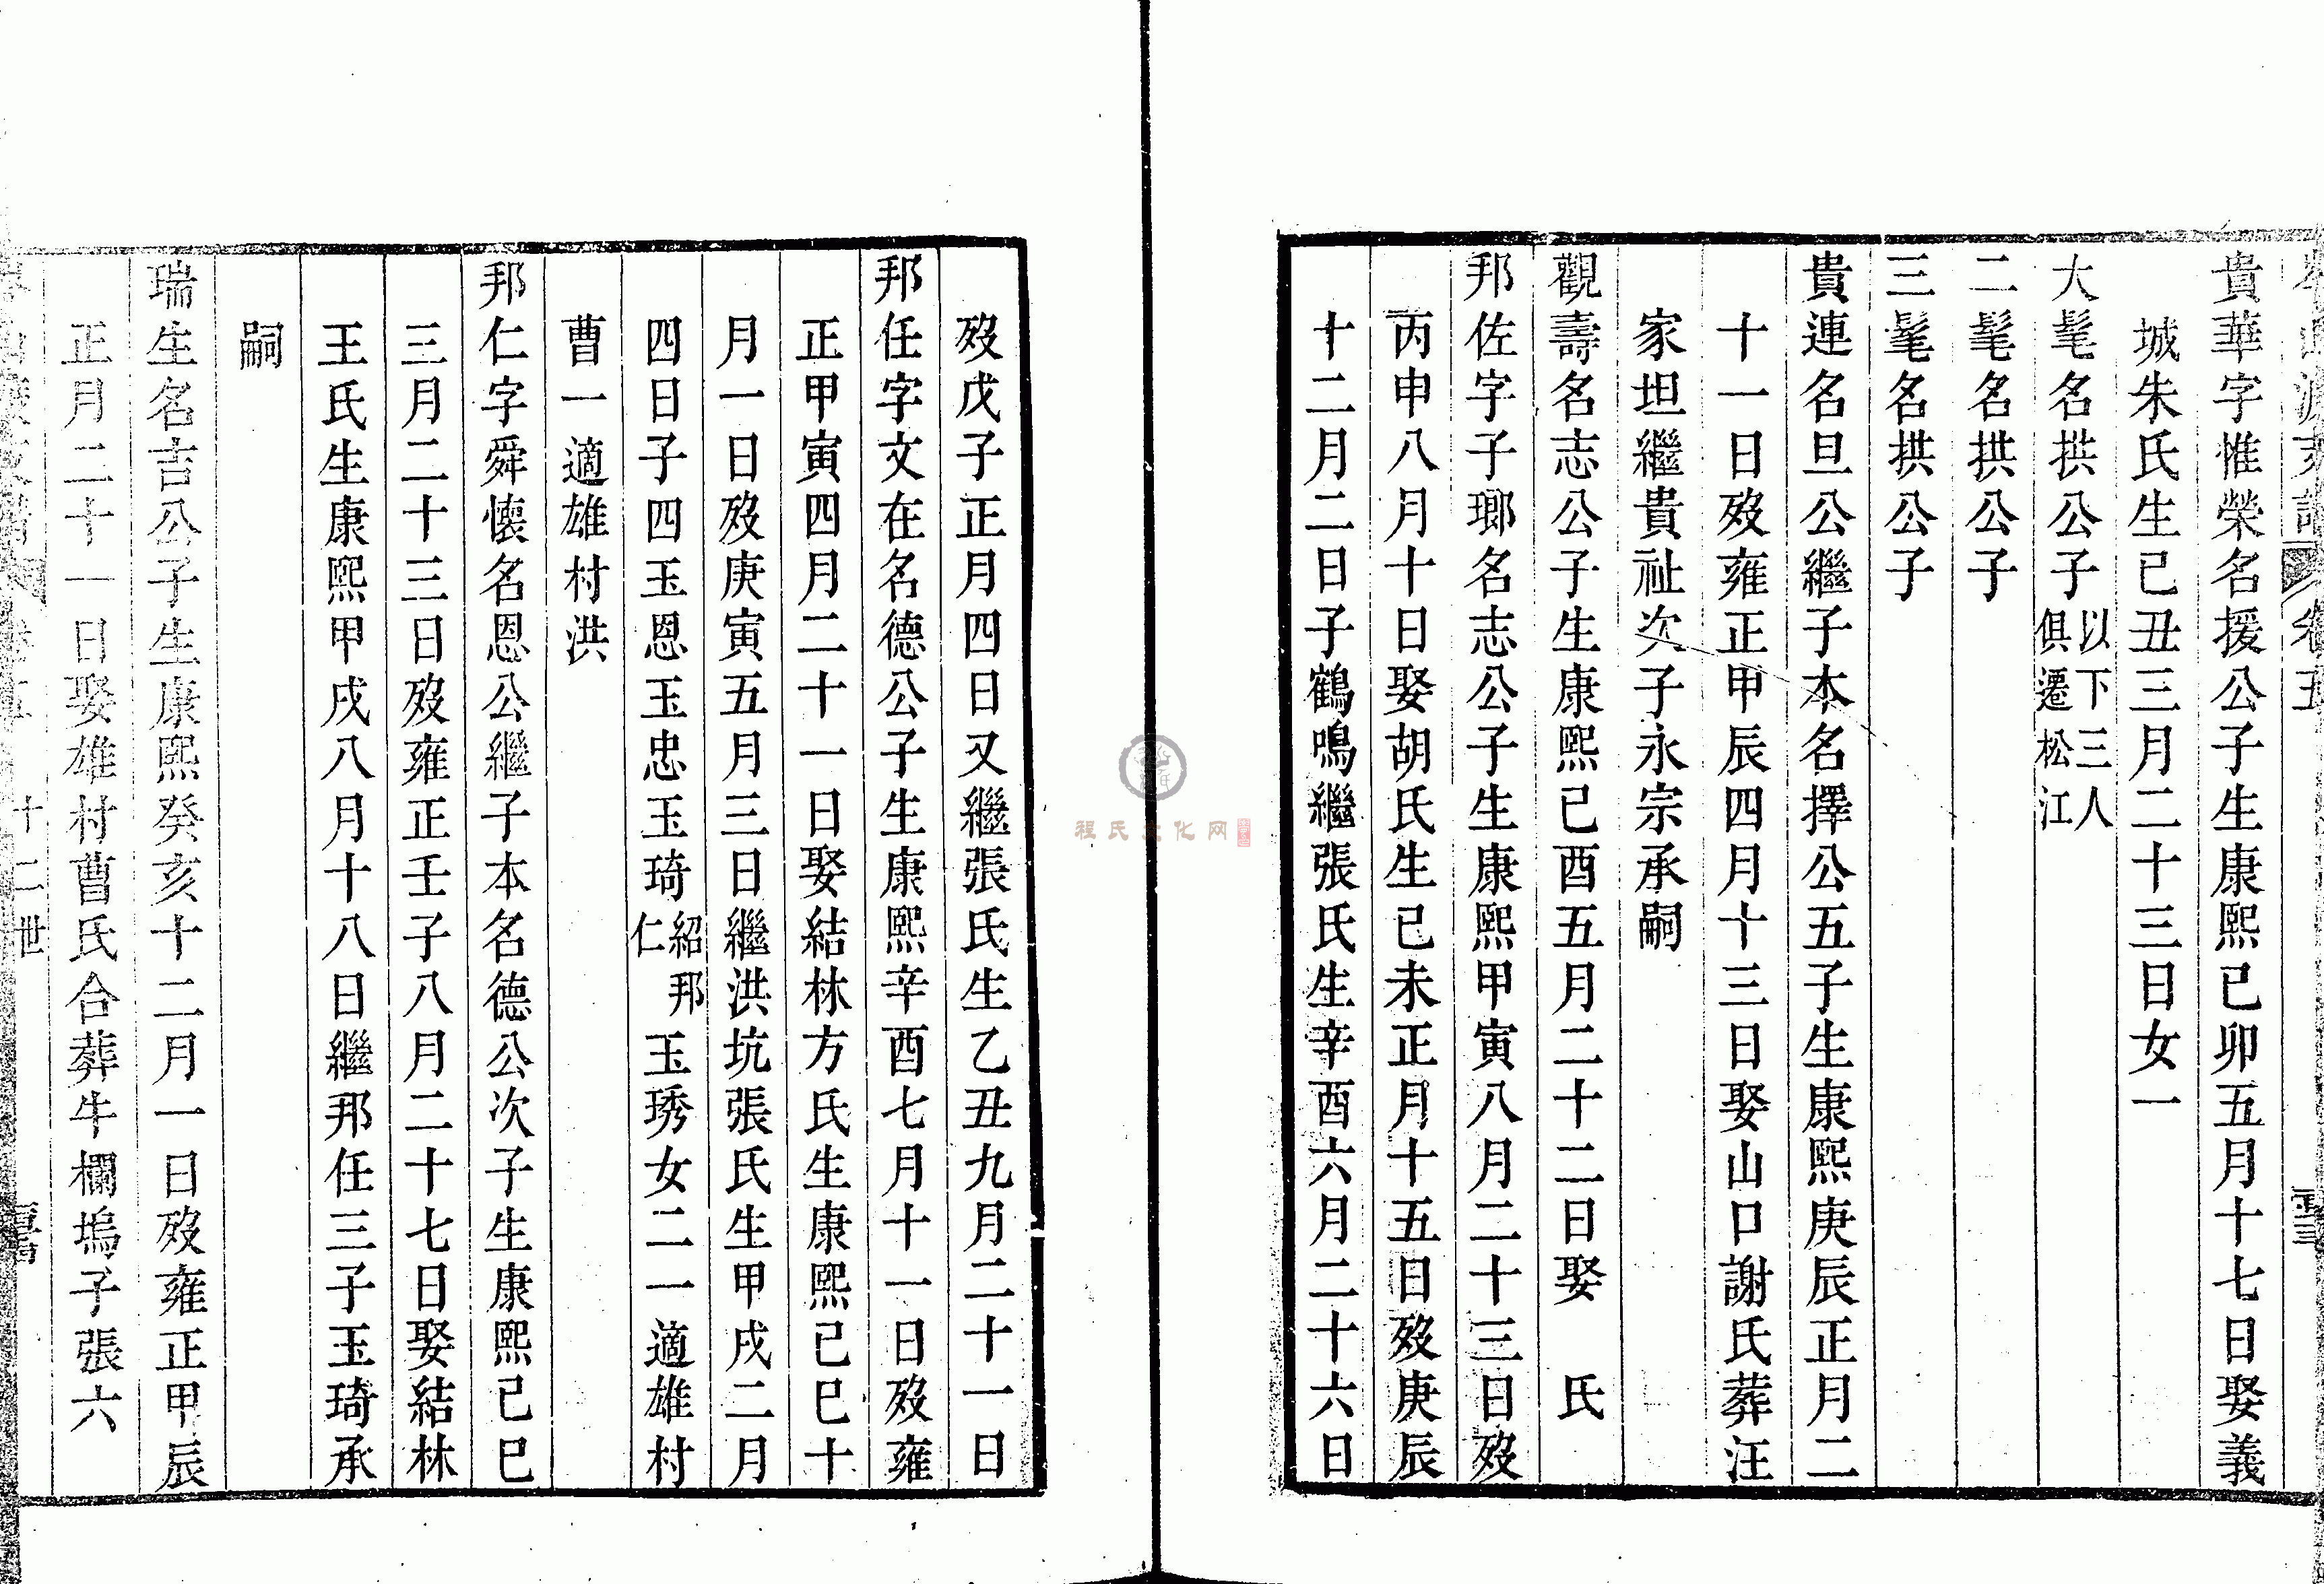 卷五
貴華字惟榮名援公子生康熙己卯五月十七日娶義
城朱氏生己丑三月二十三日女一
大髦名拱公子以下三人俱遷松江
二髦名拱公子
三髦名拱公子
貴連名旦公繼子本名擇公五子生康熙庚辰正月二
十一日歿雍正甲辰四月十三日娶山口謝氏葬汪
家坦繼貴祉次子永宗承嗣
觀壽名志公子生康熙己酉五月二十二日娶　氏
邦佐字子瑯名志公子生康熙甲寅八月二十三日歿
丙申八月十日娶胡氏生己未正月十五日歿庚辰
十二月二日子鶴鳴繼張氏生辛酉六月二十六日
歿戊子正月四日又繼張氏生乙丑九月二十一日
邦任字文在名德公子生康熙辛酉七月十一日歿雍
正甲寅四月二十一日娶結林方氏生康熙己巳十
月一日歿庚寅五月三日繼洪坑張氏生甲戌二月
四日子四玉恩玉忠玉琦紹邦仁玉琇女二一適雄村
曹一適雄村洪
邦仁字舜懷名恩公繼子本名德公次子生康熙己巳
三月二十三日歿雍正壬子八月二十七日娶結林
王氏生康熙甲戌八月十八日繼邦任三子玉琦承
嗣
瑞生名吉公子生康熙癸亥十二月一日歿雍正甲辰
正月二十一日娶雄村曹氏合葬牛欄塢子張六
十二世
程氏文化网